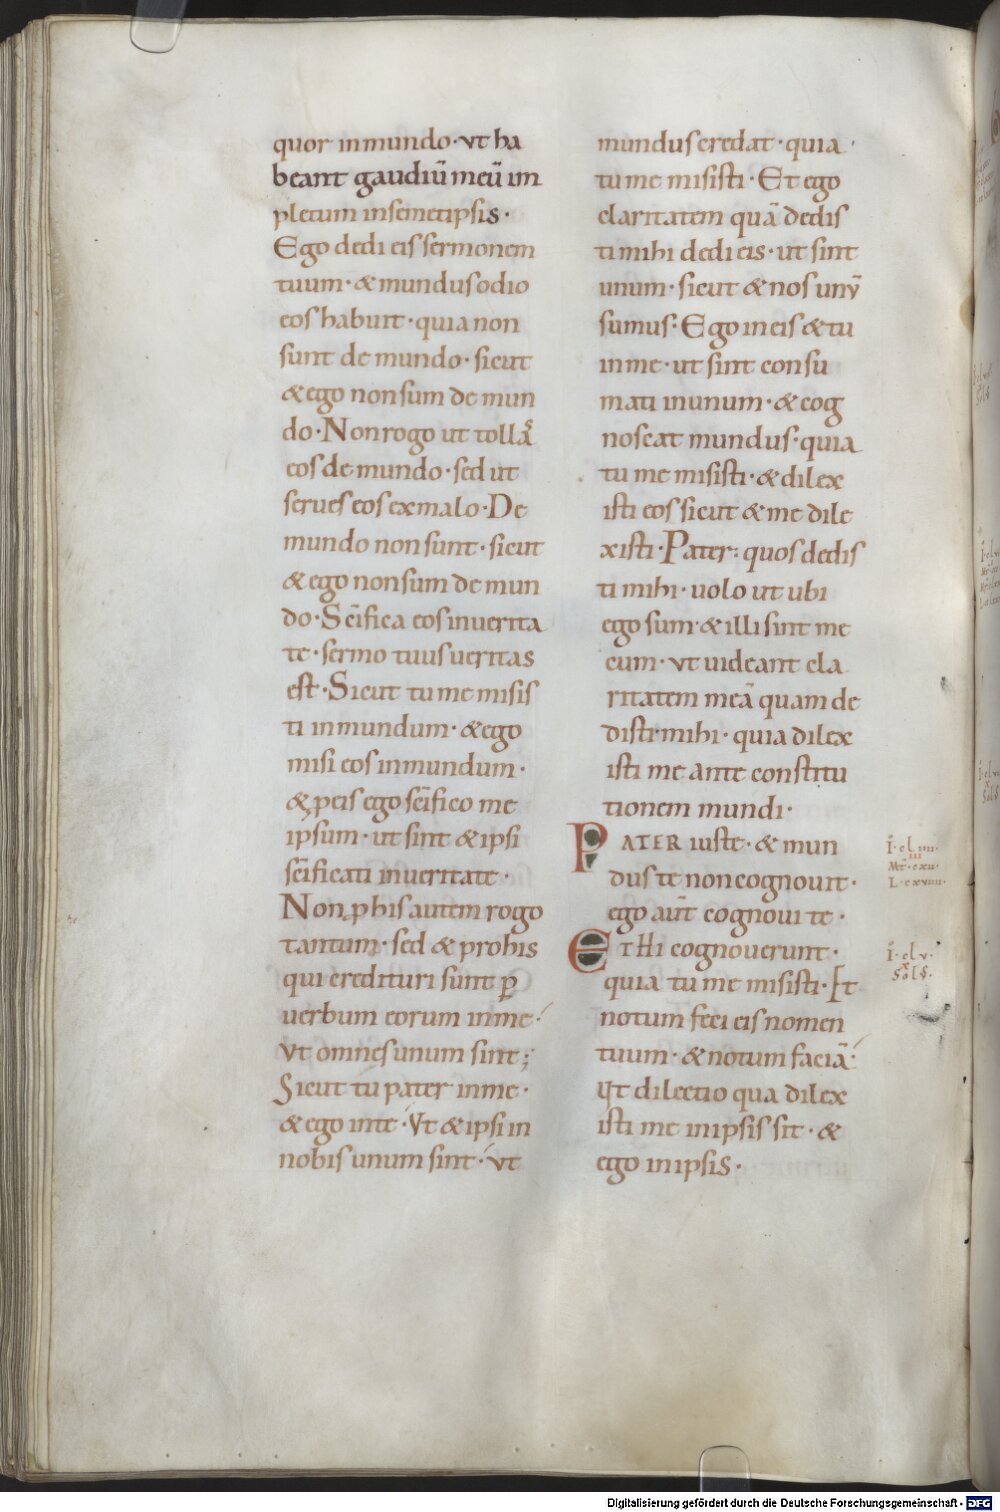 quor in mundo · ut ha
beant gaudiū meū im
pletum in semetipsis ·
Ego dedi eis sermonem
tuum · & mundus odio
eos habuit · quia non
sunt de mundo · sicut
& ego non sum de mun
do · Non rogo ut tollas
eos de mundo · sed ut
serues eos ex malo · De
mundo non sunt · sicut
& ego non sum de mun
do · Sc̄ifica eos in uerita
te · sermo tuus ueritas
est · Sicut tu me misis
ti in mundum · & ego
misi eos in mundum ·
& ꝓ eis ego sc̄ifico me
ipsum · ut sint & ipsi
sc̄ificati in ueritate ·
Non ꝓ his autem rogo
tantum · sed & pro his
qui credituri sunt ꝑ
uerbum eorum in me ·
Vt omnes unum sint ;
Sicut tu pater in me ·
& ego in te · Vt & ipsi in
nobis unum sint · ut
mundus credat · quia
tu me misisti · Et ego
claritatem quā dedis
ti mihi dedi eis · ut sint
unum · sicut & nos unū
sumus · Ego in eis & tu
in me · ut sint consu
mati in unum · & cog
noscat mundus · quia
tu me misisti · & dilex
isti eos sicut & me dile
xisti · Pater : quos dedis
ti mihi · uolo ut ubi
ego sum · & illi sint me
cum · ut uideant cla
ritatem meā quam de
disti mihi · quia dilex
isti me ante constitu
tionem mundi ·
PATER iuste · & mun
dus te non cognouit ·
ego aūt cognoui te ·
ET Hi cognouerunt ·
quia tu me misisti · Et
notum feci eis nomen
tuum · & notum faciā ·
Vt dilectio qua dilex
isti me in ipsis sit · &
ego in ipsis ·
I · cl iiii ·
iii
Mt · cxii ·
L · cxviiii ·
I · cl v ·
x
Sol S ·
Digitalisierung gefördert durch die Deutsche Forschungsgemeinschaft - DFG